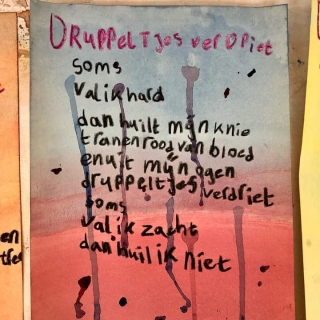 DRUPPELTJES VERDRIET
soms
val ik hard
dan huilt mijn knie
tranen rood van bloed
en uit mijn ogen
druppeltjes verdriet
soms
val ik zacht
dan huil ik niet
en